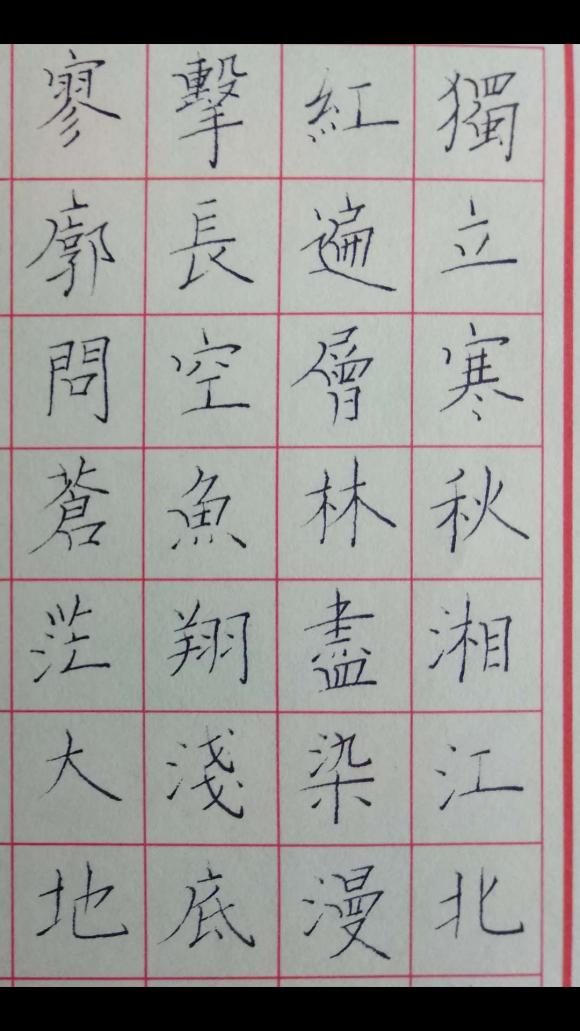 獨立寒秋湘江北
紅遍層林盡染漫
擊長空魚翔淺底
寥廓問蒼茫大地